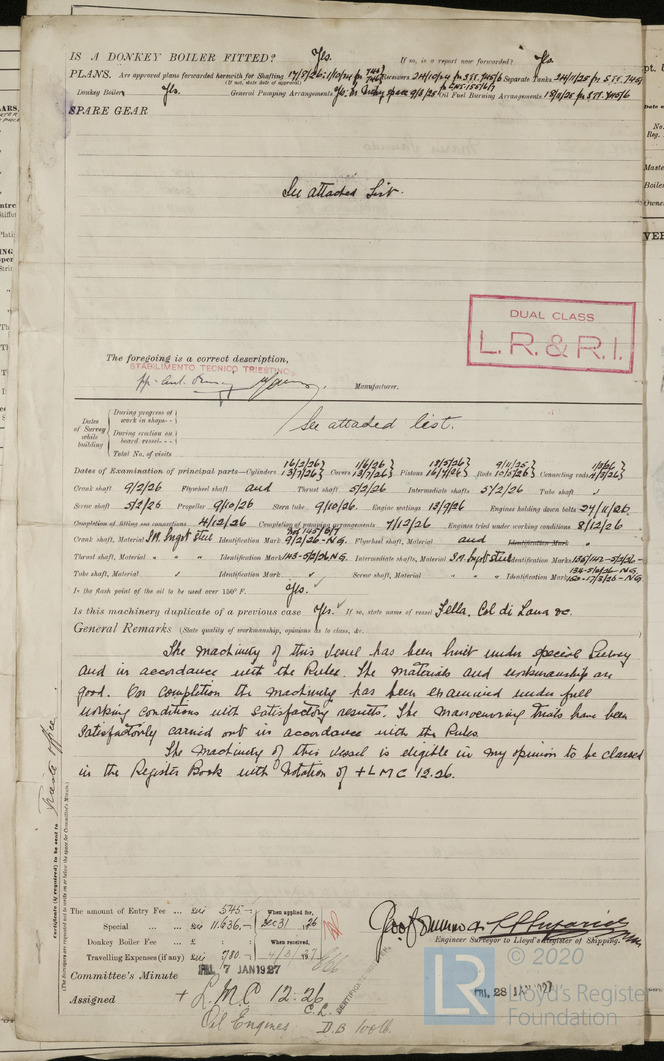 IS A DONKEY BOILER FITTED? Yes. If so, is a report now forwarded? Yes.
PLANS. Are approved plans forwarded herewith for Shafting 17/5/26: 1/10/24 for Receivers 24/10/24 for S.T.T. 745/6 Separate Tanks 24/11/25 for S.T.T. 745/
(If not, state date of approval)
Donkey Boiler Yes. General Pumping Arrangements Oil Fuel Burning Arrangements 15/8/25 for S.T.T. 745/6
SPARE GEAR
See attached List.
DUAL CLASS
L.R. & R.I.
The foregoing is a correct description,
STABILIMENTO TECNICO TRIESTINO
Manufacturer.
Dates of Survey while building
During progress of work in shops - -
During erection on board vessel - - -
Total No. of visits
See attached list.
Dates of Examination of principal parts—Cylinders 16/2/26 13/7/26 Covers 1/6/26 13/7/26 Pistons 18/5/26 16/7/26 Rods 9/11/25 10/7/26 Connecting rods
Crank shaft 9/2/26 Flywheel shaft and Thrust shaft 5/2/26 Intermediate shafts 5/2/26 Tube shaft ✓
Screw shaft 5/2/26 Propeller 9/10/26 Stern tube 9/10/26. Engine seatings 13/9/26 Engines holding down bolts 27/11/26.
Completion of fitting sea connections 4/12/26 Completion of pumping arrangements 7/12/26 Engines tried under working conditions 8/12/26
Crank shaft, Material S.M. Ingot Steel Identification Mark 9/2/26-N.G. Flywheel shaft, Material and Identification Mark
Thrust shaft, Material " " " Identification Mark 143-5/2/26 N.G. Intermediate shafts, Material S.M. Ingot Steel Identification Marks
Tube shaft, Material ✓ Identification Mark ✓ Screw shaft, Material " " " Identification Mark
Is the flash point of the oil to be used over 150° F. Yes.
Is this machinery duplicate of a previous case Yes. If so, state name of vessel Fella, Col di Lana &c.
General Remarks (State quality of workmanship, opinions as to class, &c.
The machinery of this vessel has been built under special survey
and in accordance with the Rules. The materials and workmanship are
good. On completion the machinery has been examined under full
working conditions with satisfactory results. The manoeuvring trials have been
satisfactorily carried out in accordance with the Rules
The machinery of this vessel is eligible in my opinion to be classed
in the Register Book with notation of + L M C 12.26.
Certificate (if required) to be sent to Trieste office.
(The Surveyors are requested not to write on or below the space for Committee's Minute.)
The amount of Entry Fee ... Lire 545.-
Special ... Lire 11,636.-
Donkey Boiler Fee ... £ : :
Travelling Expenses (if any) Lire 700.-
When applied for, Dec 31 1926
When received, 4/3/1927
Engineer Surveyor to Lloyd's Register of Shipping.
Committee's Minute FRI. 7 JAN 1927
FRI. 28 JAN 1927
Assigned + L.M.C 12.26
C.L.
Oil Engines D.B 100 lb.
© 2020
LR
Lloyd's Register
Foundation